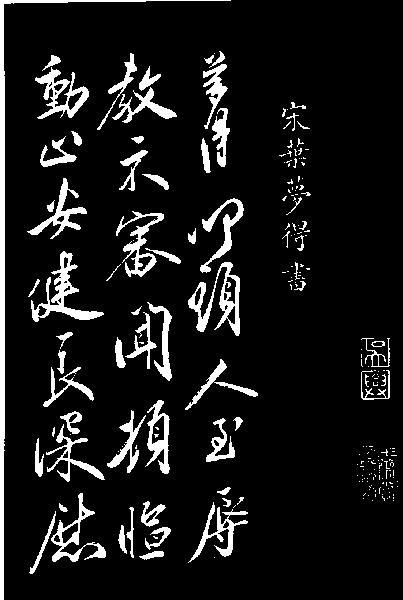 宋葉夢得書
夢得叩頭人至辱
教示審聞頓暄
動止安健良深慰